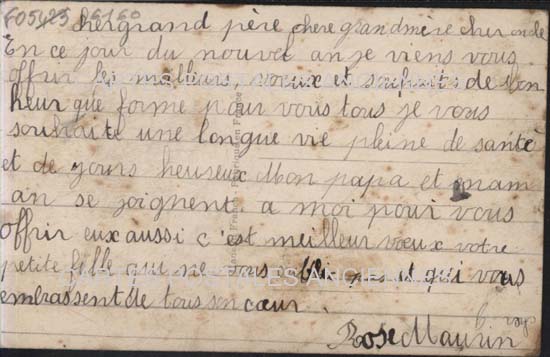 cher grand père chere grandmère cher oncle
En ce jour du nouvel an je viens vous
offrir les meilleurs, voeux et souhaits de bon
heur que forme pour vous tous je vous
souhaite une longue vie pleine de santé
et de jours heureux Mon papa et mam
an se joignent a moi pour vous
offrir eux aussi c'est meilleur voeux votre
petite fille qui ne vous oublie pas et qui vous
embrassent de tous son cœur.
Rose Maurin